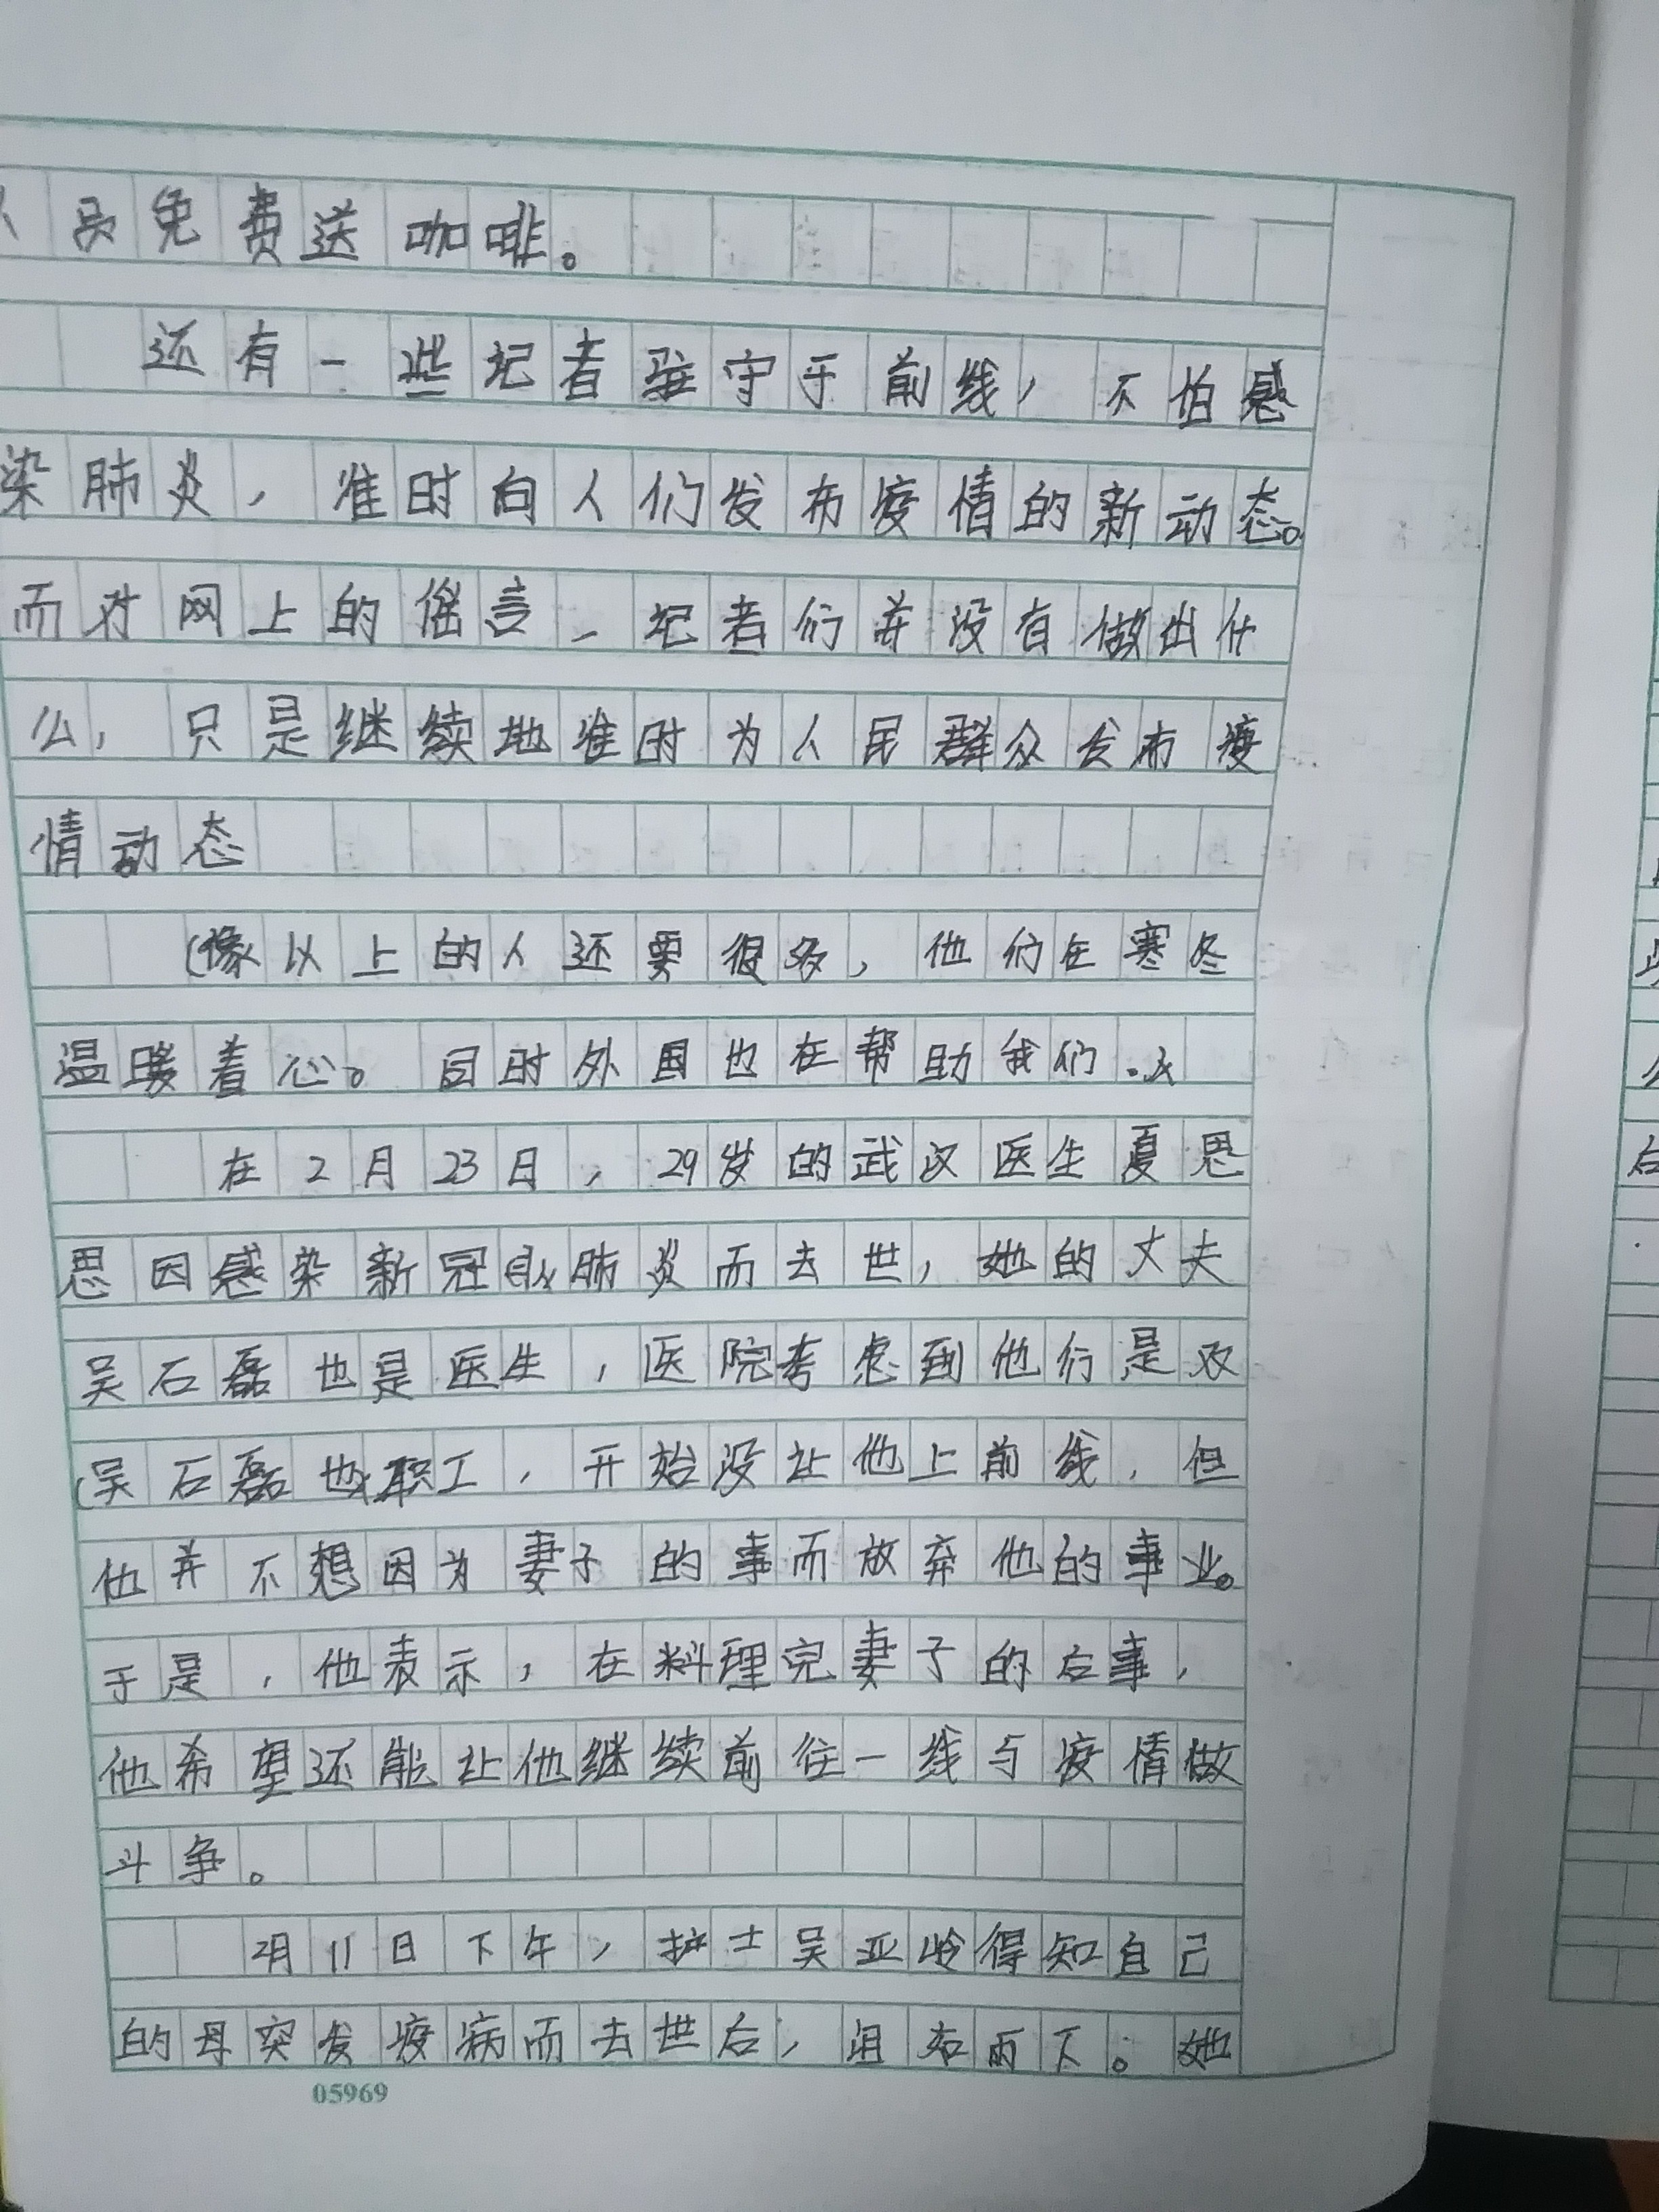 人员免费送咖啡。
还有一些记者驻守于前线，不怕感
染肺炎，准时向人们发布疫情的新动态。
而对网上的谣言，记者们并没有做出什
么，只是继续地准时为人民群众发布疫
情动态
(像以上的人还要很多，他们在寒冬
温暖着心。同时外国也在帮助我们.
在2月23日，29岁的武汉医生夏思
思因感染新冠肺炎而去世，她的丈夫
吴石磊也是医生，医院考虑到他们是双
(吴石磊也职工，开始没让他上前线，但
他并不想因为妻子的事而放弃他的事业。
于是，他表示，在料理完妻子的后事，
他希望还能让他继续前往一线与疫情做
斗争。
2月11日下午，护士吴亚玲得知自己
的母突发疫病而去世后，泪右而下。她
05969